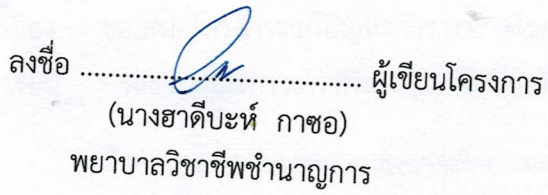 ลงชื่อ ........................................ ผู้เขียนโครงการ
(นางฮาดีบะห์ กาซอ)
พยาบาลวิชาชีพชำนาญการ